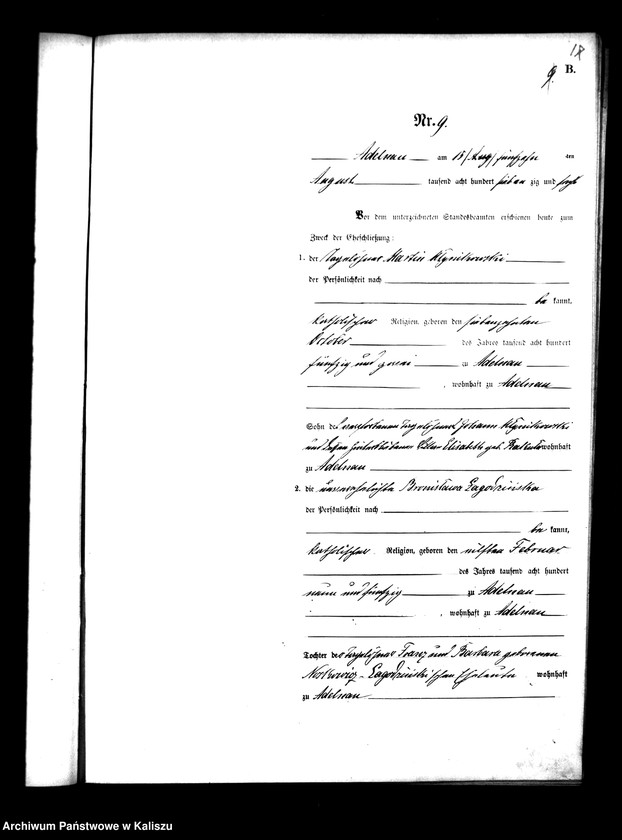 18
9. B.
Nr. 9.
Adelnau am 15/ten fünfzehn ten
August tausend acht hundert sieben zig und sechs
Vor dem unterzeichneten Standesbeamten erschienen heute zum
Zweck der Eheschließung:
1. der Tagelöhner Martin
der Persönlichkeit nach
be kannt,
katholischer Religion, geboren den siebenzehnten
October des Jahres tausend acht hundert
fünfzig und zwei zu Adelnau
, wohnhaft zu Adelnau
Sohn des verstorbenen Tagelöhners Johann
und dessen hinterbliebenen Elisabeth geb. wohnhaft
zu Adelnau
2. die unverehelichte Bronislawa
der Persönlichkeit nach
be kannt,
katholischer Religion, geboren den elften Februar
des Jahres tausend acht hundert
neun und fünfzig zu Adelnau
, wohnhaft zu Adelnau
Tochter der Tagelöhner Franz und Barbara geborenen
Eheleute wohnhaft
zu Adelnau
Archiwum Państwowe w Kaliszu